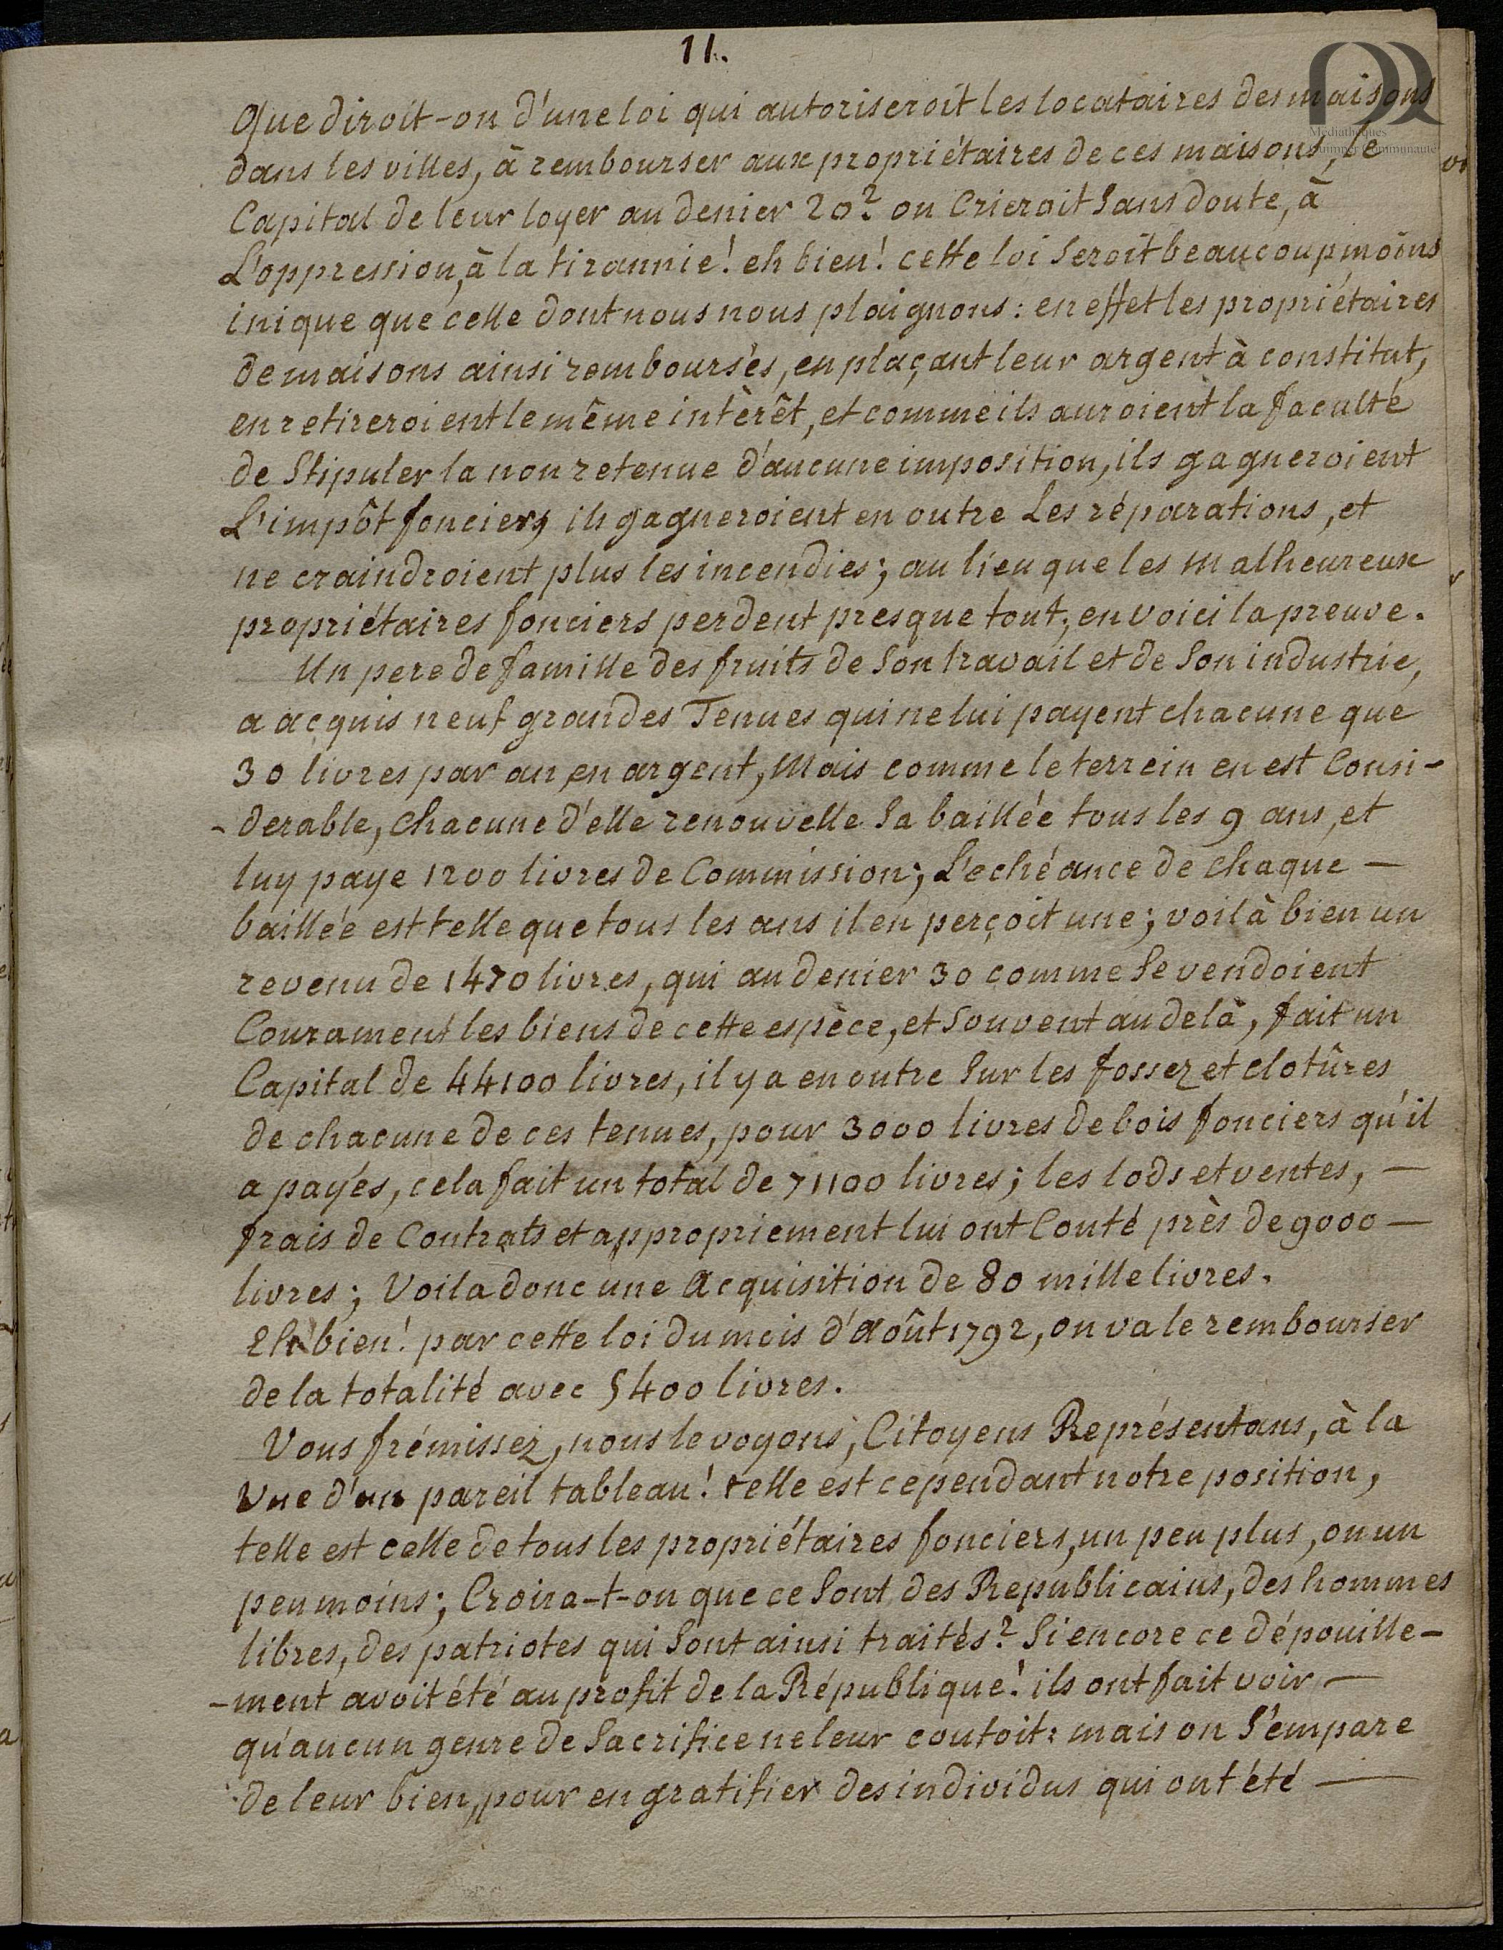 11.
Que diroit-on d'une loi qui autoriseroit les locataires des maisons
dans les villes, à rembourser aux propriétaires de ces maisons, le
Capital de leur loyer au denier 20? on Crieroit Sans doute, à
L'oppression, à la tirannie! eh bien! cette loi Seroit beaucoup moins
inique que celle dont nous nous plaignons: en effet les propriétaires
de maisons ainsi remboursés, en plaçant leur argent à constitut,
en retireroient le même intèrêt, et comme ils auroient la faculté
de Stipuler la non retenue d'aucune imposition, ils gagneroient
L'impôt foncier, ils gagneroient en outre Les réparations, et
ne craindroient plus les incendies; au lieu que les Malheureux
propriétaires fonciers perdent presque tout; en voici la preuve.
Un pere de famille des fruits de Son travail et de Son industrie,
a acquis neuf grandes Tenues qui ne lui payent chacune que
30 livres par an en argent, Mais comme le terrein en est Consi-
-derable, chacune d'elle renouvelle Sa baillée tous les 9 ans, et
luy paye 1200 livres de Commission; L'echéance de chaque —
baillée est telle que tous les ans il en perçoit une; voilà bien un
revenu de 1470 livres, qui au denier 30 comme Se vendoient
Courament les biens de cette espèce, et Souvent au delà, fait un
Capital de 44100 livres, il y a en outre Sur les fossez et clotûres
de chacune de ces tenues, pour 3000 livres de bois fonciers qu'il
a payés, cela fait un total de 71100 livres; les lods et ventes, —
frais de Contrats et appropriement lui ont Couté près de 9000 —
livres; Voila donc une Acquisition de 80 mille livres.
Eh bien! par cette loi du mois d'Août 1792, on va le rembourser
de la totalité avec 5400 livres.
Vous frémissez, nous le voyons, Citoyens Représentans, à la
Vue d'un pareil tableau! telle est cependant notre position,
telle est celle de tous les propriétaires fonciers, un peu plus, ou un
peu moins; Croira-t-on que ce Sont des Republicains, des hommes
libres, des patriotes qui Sont ainsi traités? Si encore ce dépouille-
-ment avoit été au profit de la République! ils ont fait voir —
qu'aucun genre de Sacrifice ne leur coutoit: mais on S'empare
de leur bien, pour en gratifier des individus qui ont été —
Médiathèques
Quimper Communauté